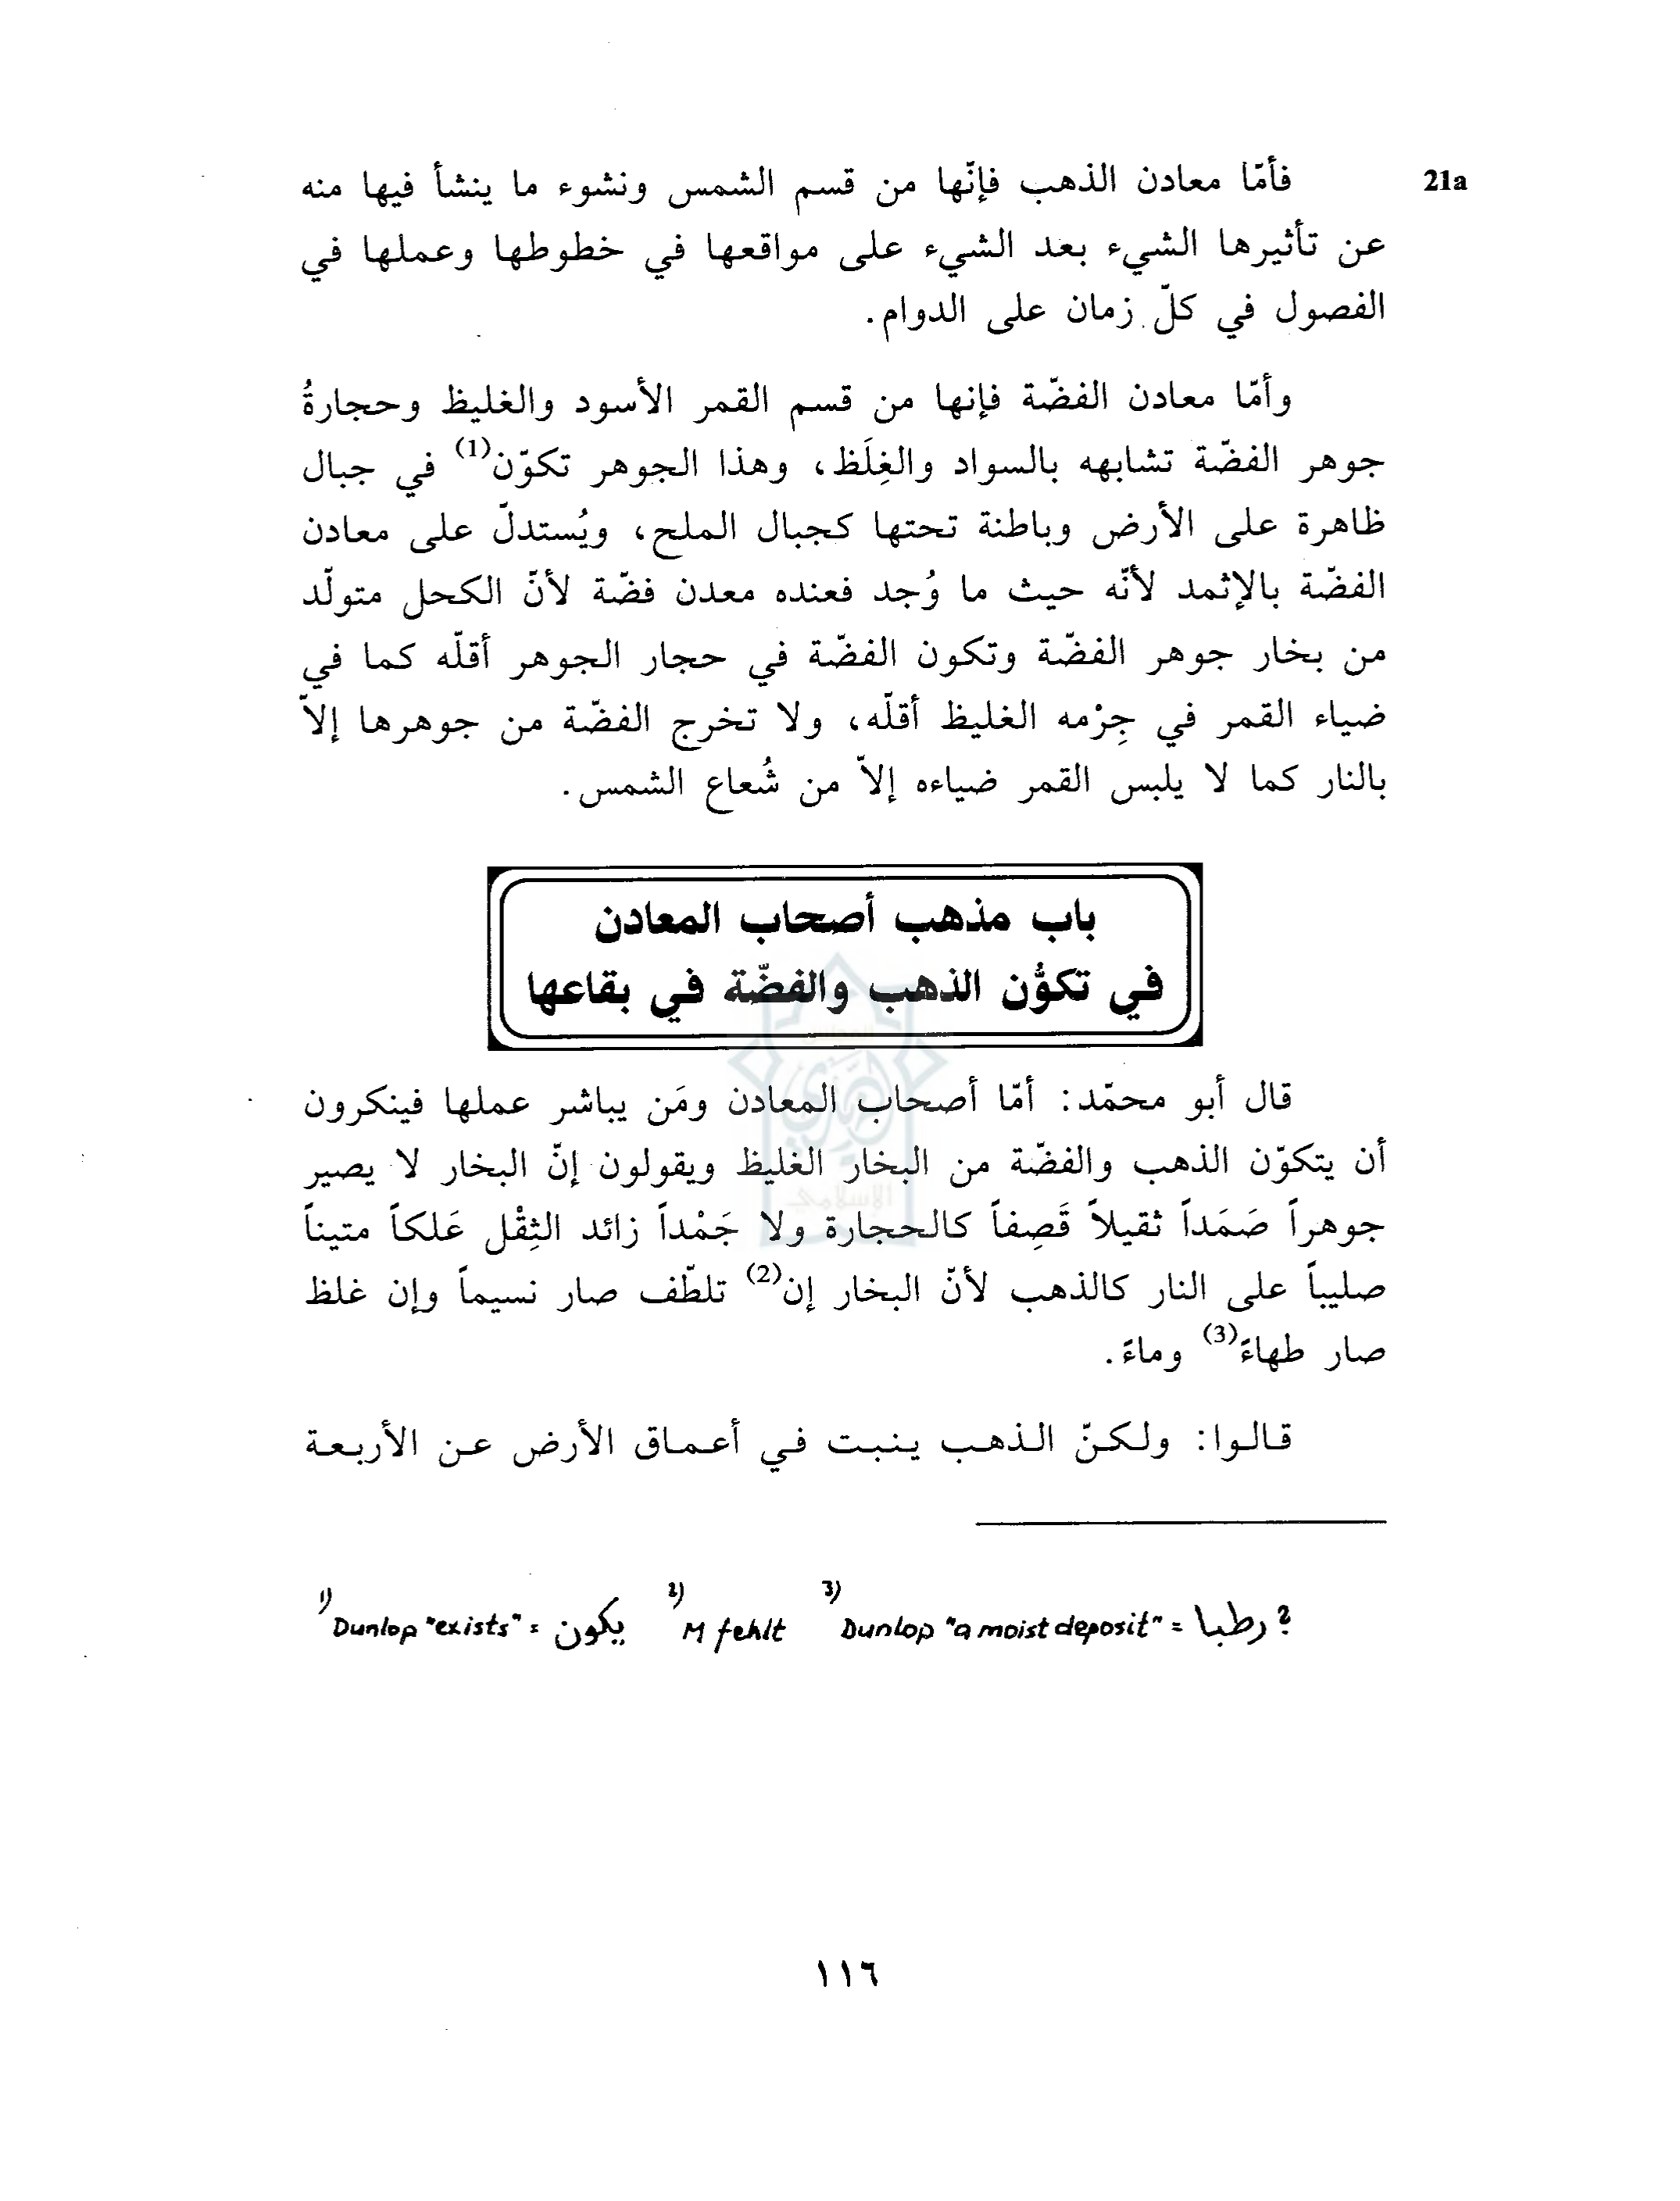 21a
فأمّا معادن الذهب فإنّها من قسم الشمس ونشوء ما ينشأ فيها منه
عن تأثيرها الشيء بعد الشيء على مواقعها في خطوطها وعملها في
الفصول في كلّ زمان على الدوام.
وأمّا معادن الفضّة فإنها من قسم القمر الأسود والغليظ وحجارةُ
جوهر الفضّة تشابهه بالسواد والغِلَظ، وهذا الجوهر تكوّن(1) في جبال
ظاهرة على الأرض وباطنة تحتها كجبال الملح، ويُستدلّ على معادن
الفضّة بالإثمد لأنّه حيث ما وُجد فعنده معدن فضّة لأنّ الكحل متولّد
من بخار جوهر الفضّة وتكون الفضّة في حجار الجوهر أقلّه كما في
ضياء القمر في جِرْمه الغليظ أقلّه، ولا تخرج الفضّة من جوهرها إلاّ
بالنار كما لا يلبس القمر ضياءه إلاّ من شُعاع الشمس.
باب مذهب أصحاب المعادن
في تكوُّن الذهب والفضّة في بقاعها
قال أبو محمّد: أمّا أصحاب المعادن ومَن يباشر عملها فينكرون
أن يتكوّن الذهب والفضّة من البخار الغليظ ويقولون إنّ البخار لا يصير
جوهراً صَمَداً ثقيلاً قَصِفاً كالحجارة ولا جَمْداً زائد الثِقْل عَلكاً متيناً
صليباً على النار كالذهب لأنّ البخار إن(2) تلطّف صار نسيماً وإن غلظ
صار طهاءً(3) وماءً.
قالوا: ولكنّ الذهب ينبت في أعماق الأرض عن الأربعة
1) Dunlop "exists" = يكون 2) M fehlt 3) Dunlop "a moist deposit" = رطبا ?
١١٦